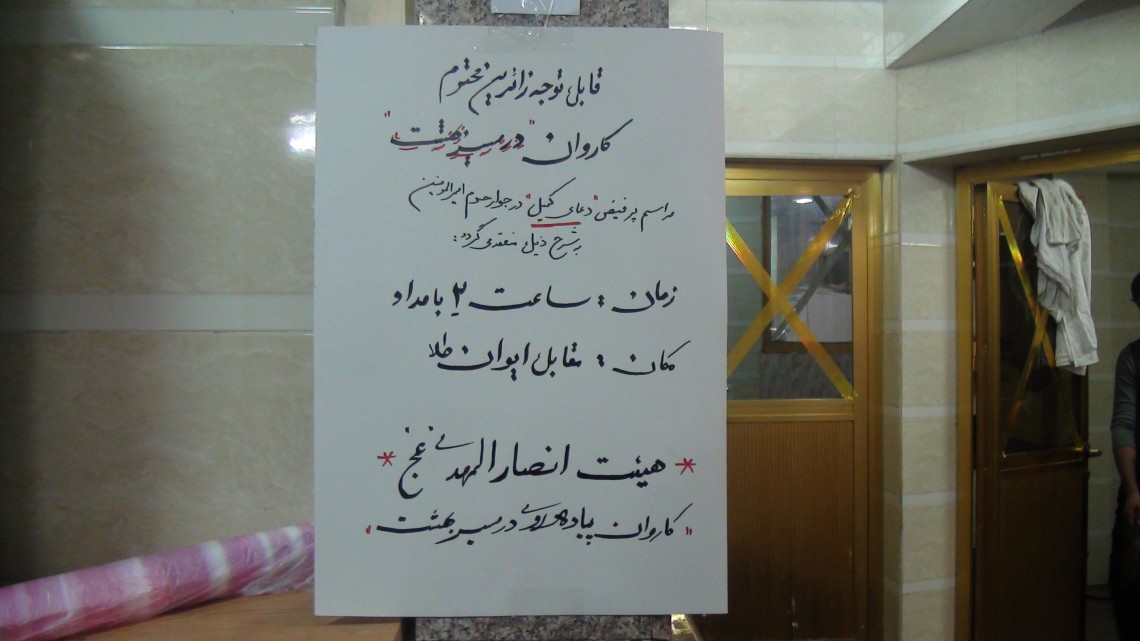 قابل توجه زائرین محترم
کاروان "در مسیر بهشت"
مراسم پرفیض "دعای کمیل" در جوار حرم امیرالمومنین
به شرح ذیل منعقد می گردد:
زمان : ساعت ۲ بامداد
مکان : مقابل ایوان طلا
* هیئت انصار المهدی عج *
"کاروان پیاده روی در مسیر بهشت"